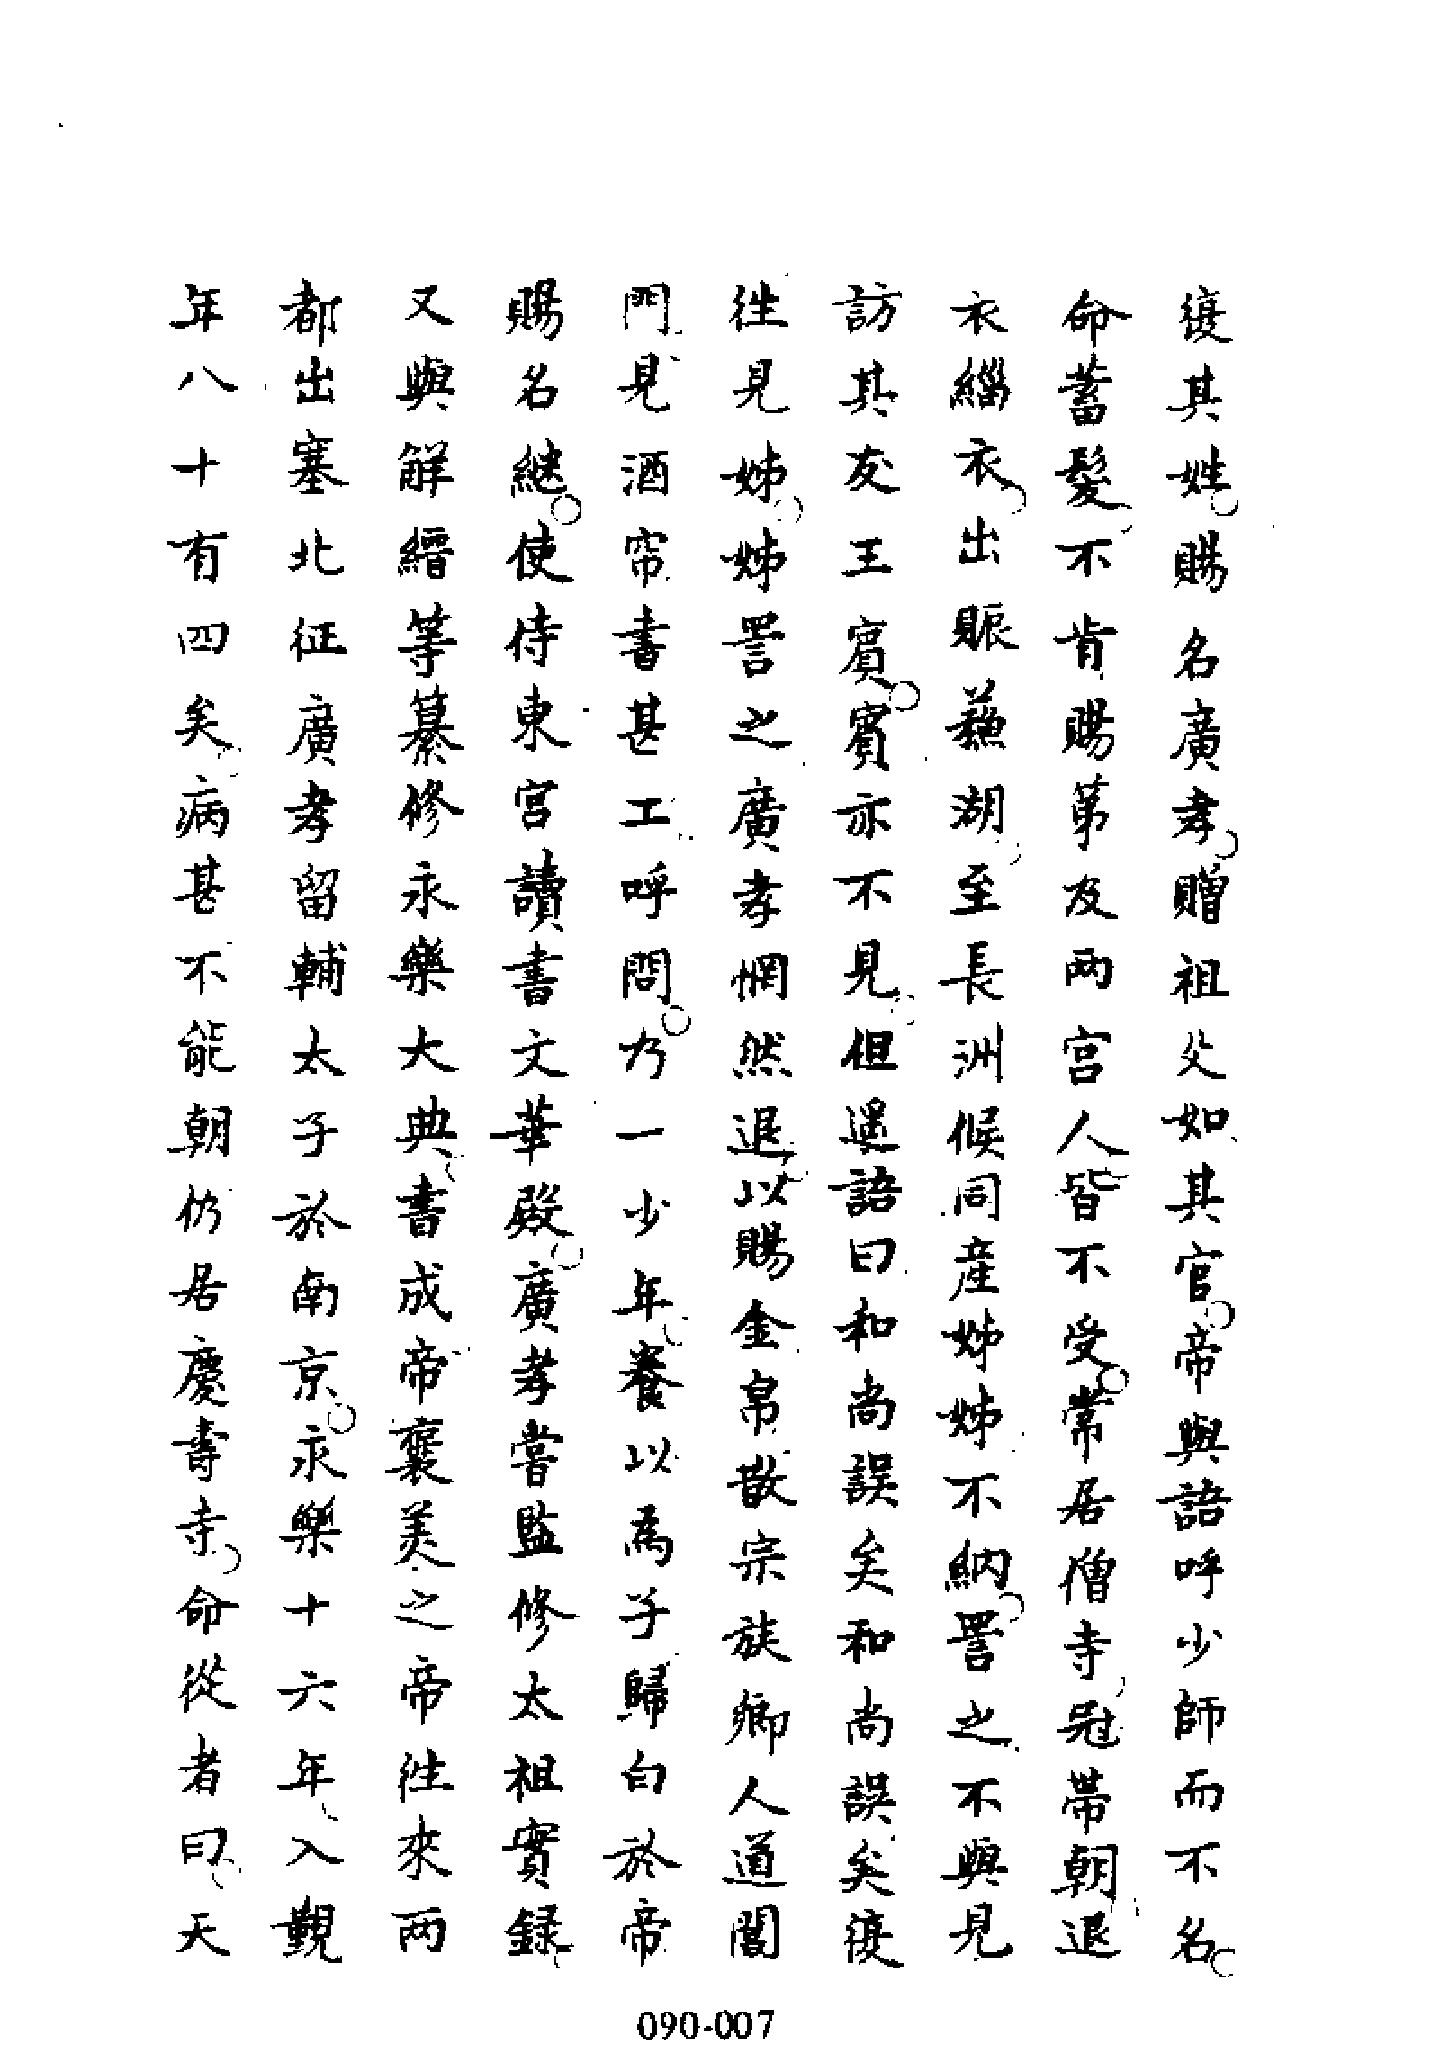 復其姓賜名廣孝贈祖父如其官帝與語呼少師而不名
命蓄髮不肯賜第及兩宮人皆不受常居僧寺冠帶朝退
衣緇衣出賑蘇湖至長洲候同產姊姊不納詈之不與見
訪其友王賓賓亦不見但遥語曰和尚誤矣和尚誤矣復
往見姊姊詈之廣孝惘然退以賜金帛散宗族鄉人道閶
門見酒帘書甚工呼問乃一少年養以為子歸白於帝
賜名繼使侍東宮讀書文華殿廣孝嘗監修太祖實錄
又與解縉等纂修永樂大典書成帝褒美之帝往來兩
都出塞北征廣孝留輔太子於南京永樂十六年入覲
年八十有四矣病甚不能朝仍居慶壽寺命從者曰天
090-007